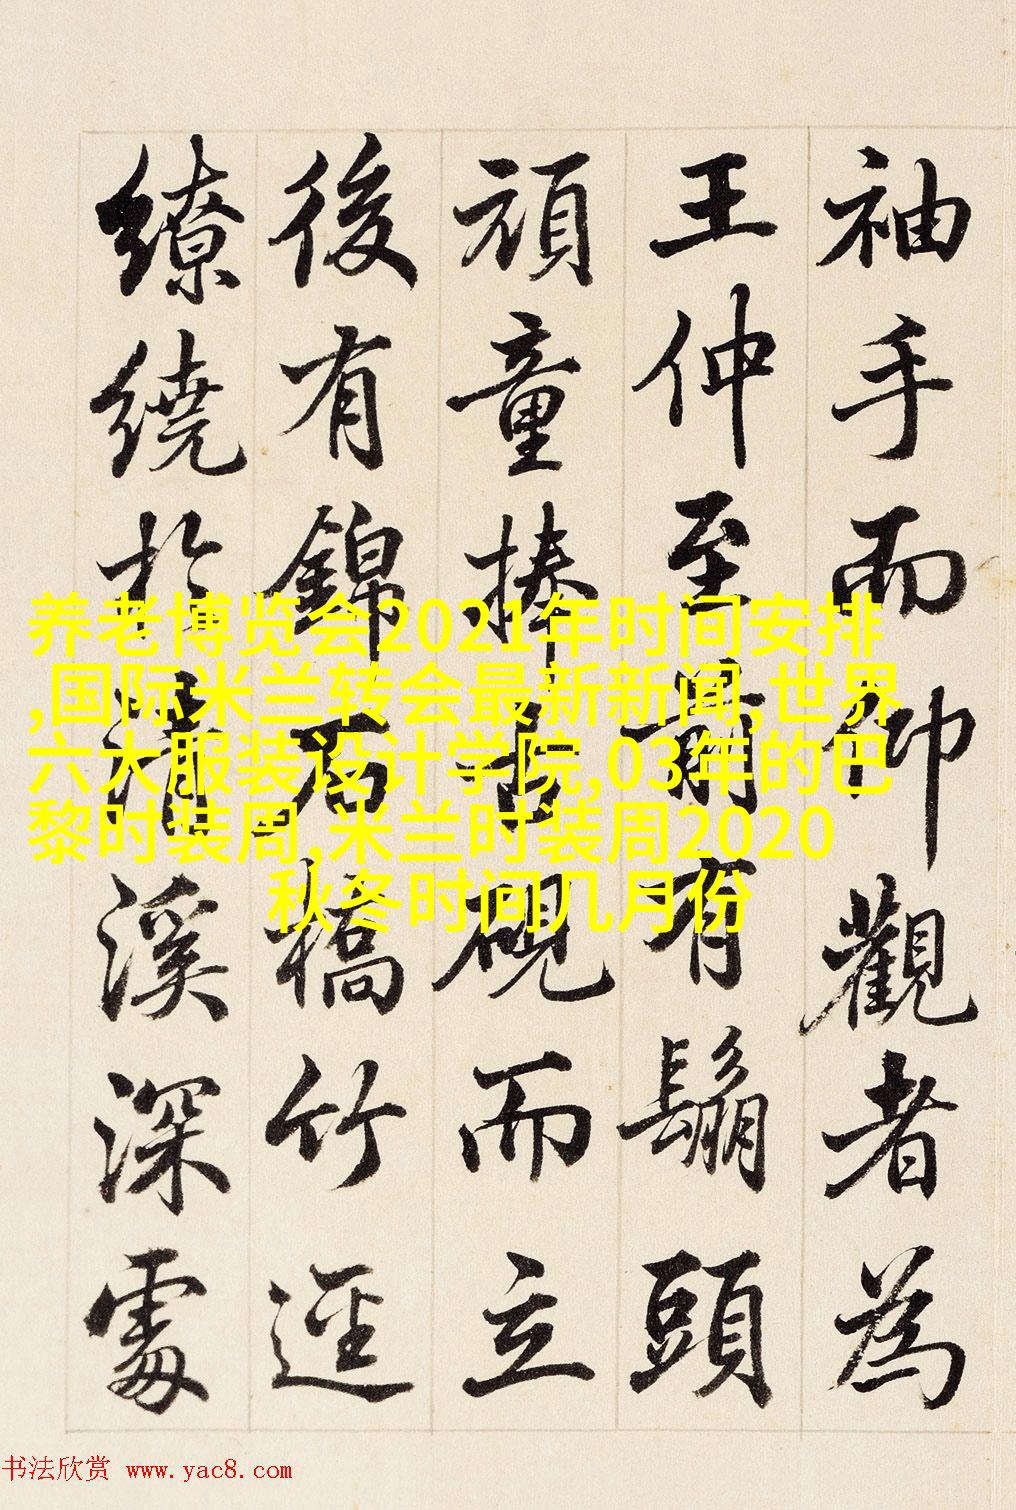 袖手而仰觀者為
王仲至前有鬅頭
頑童捧古硯而立
後有錦石橋竹逕
繚繞於清溪深處
养老博览会2021年时间安排
,国际米兰转会最新新闻,世界
六大服装设计学院,03年的巴
黎时装周,米兰时装周2020
秋冬时间几月份
书法欣赏 www.yac8.com